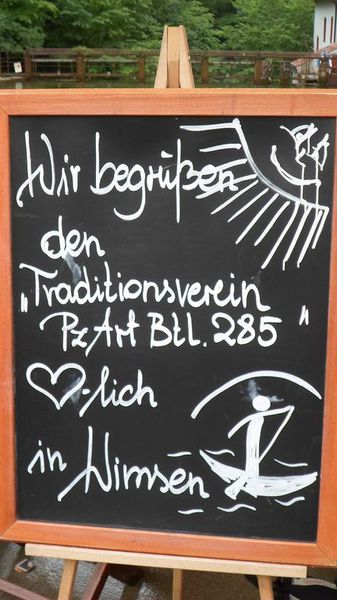 Wir begrüßen
den
„Traditionsverein
PzArt Btl. 285"
♡-lich
in Wimsen